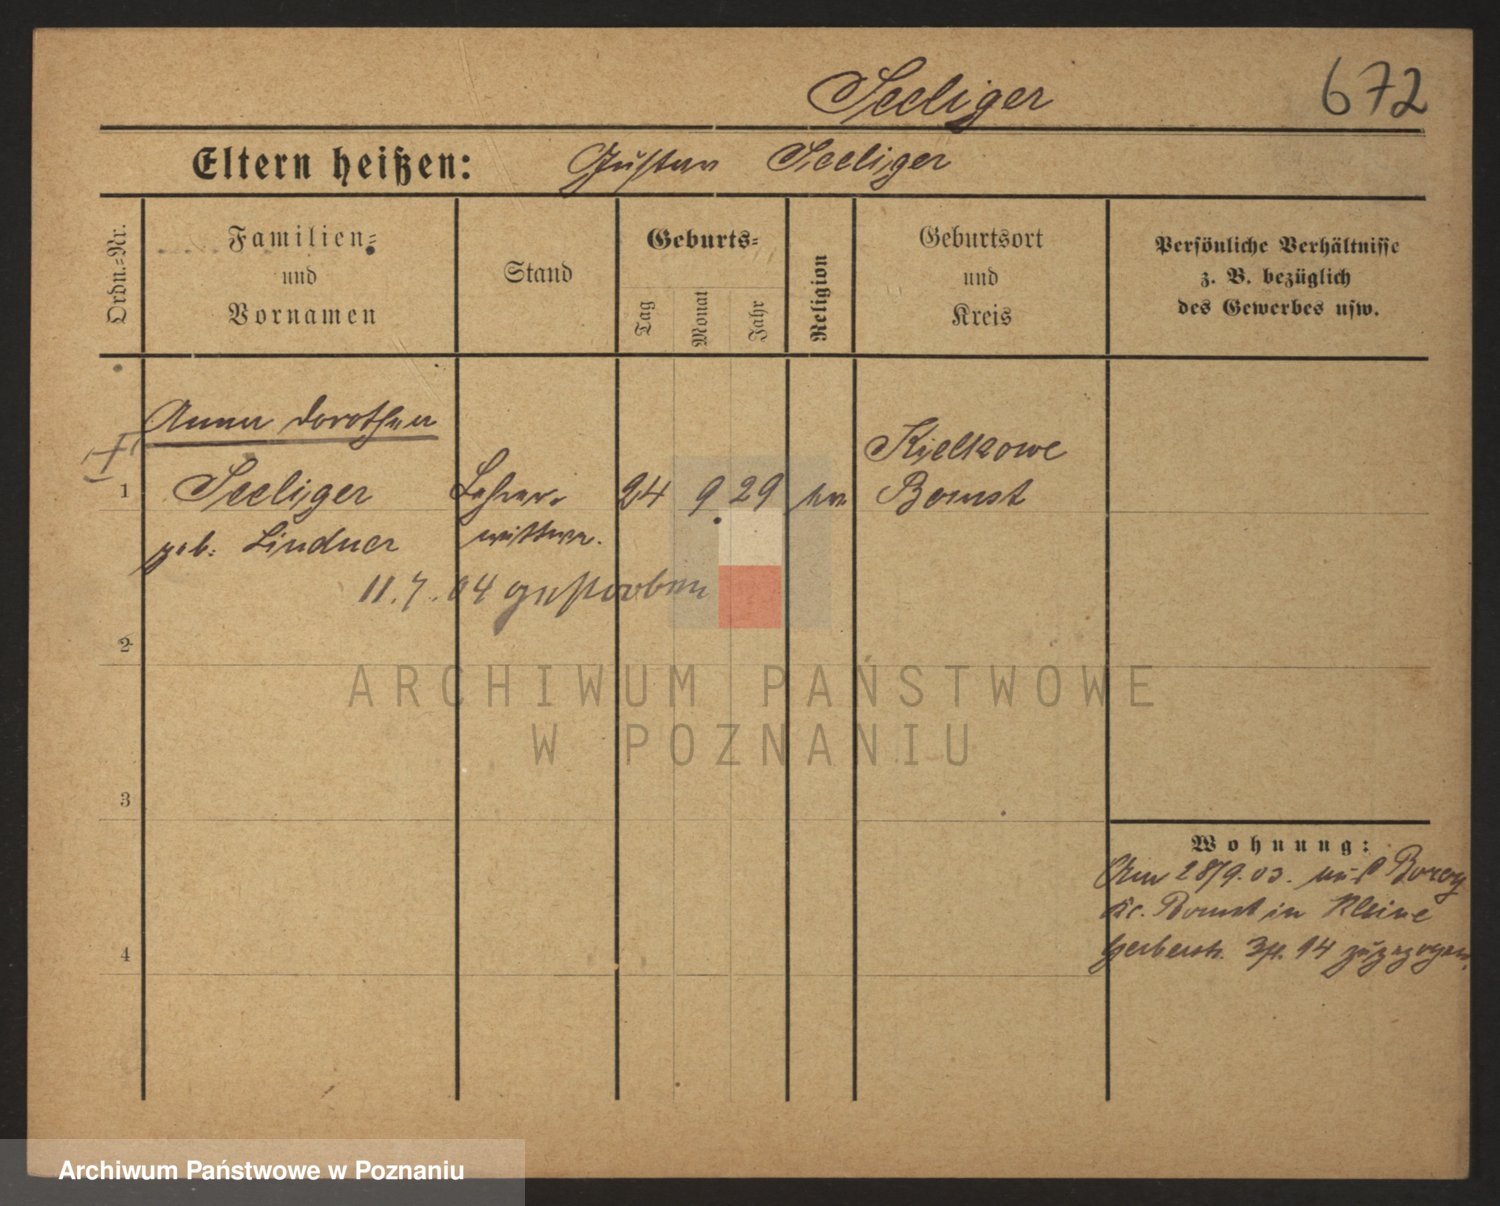 Seeliger 672
Eltern heißen: Gustav Seeliger
Ordn.-Nr.
Familien- und Vornamen
Stand
Geburts-
Tag Monat Jahr
Religion
Geburtsort und Kreis
Persönliche Verhältnisse z. B. bezüglich des Gewerbes usw.
Anna Dorothea
1 Seeliger Lehrer- 24 9 29 ev Kielkowe Bomst
geb. Lindner wittwe.
11.7.04 gestorben
2
3
4
Wohnung:
Am 28/9.03. aus
Kr. Bomst in Kleine
Gerberstr. 14 zugezogen.
ARCHIWUM PAŃSTWOWE
W POZNANIU
Archiwum Państwowe w Poznaniu